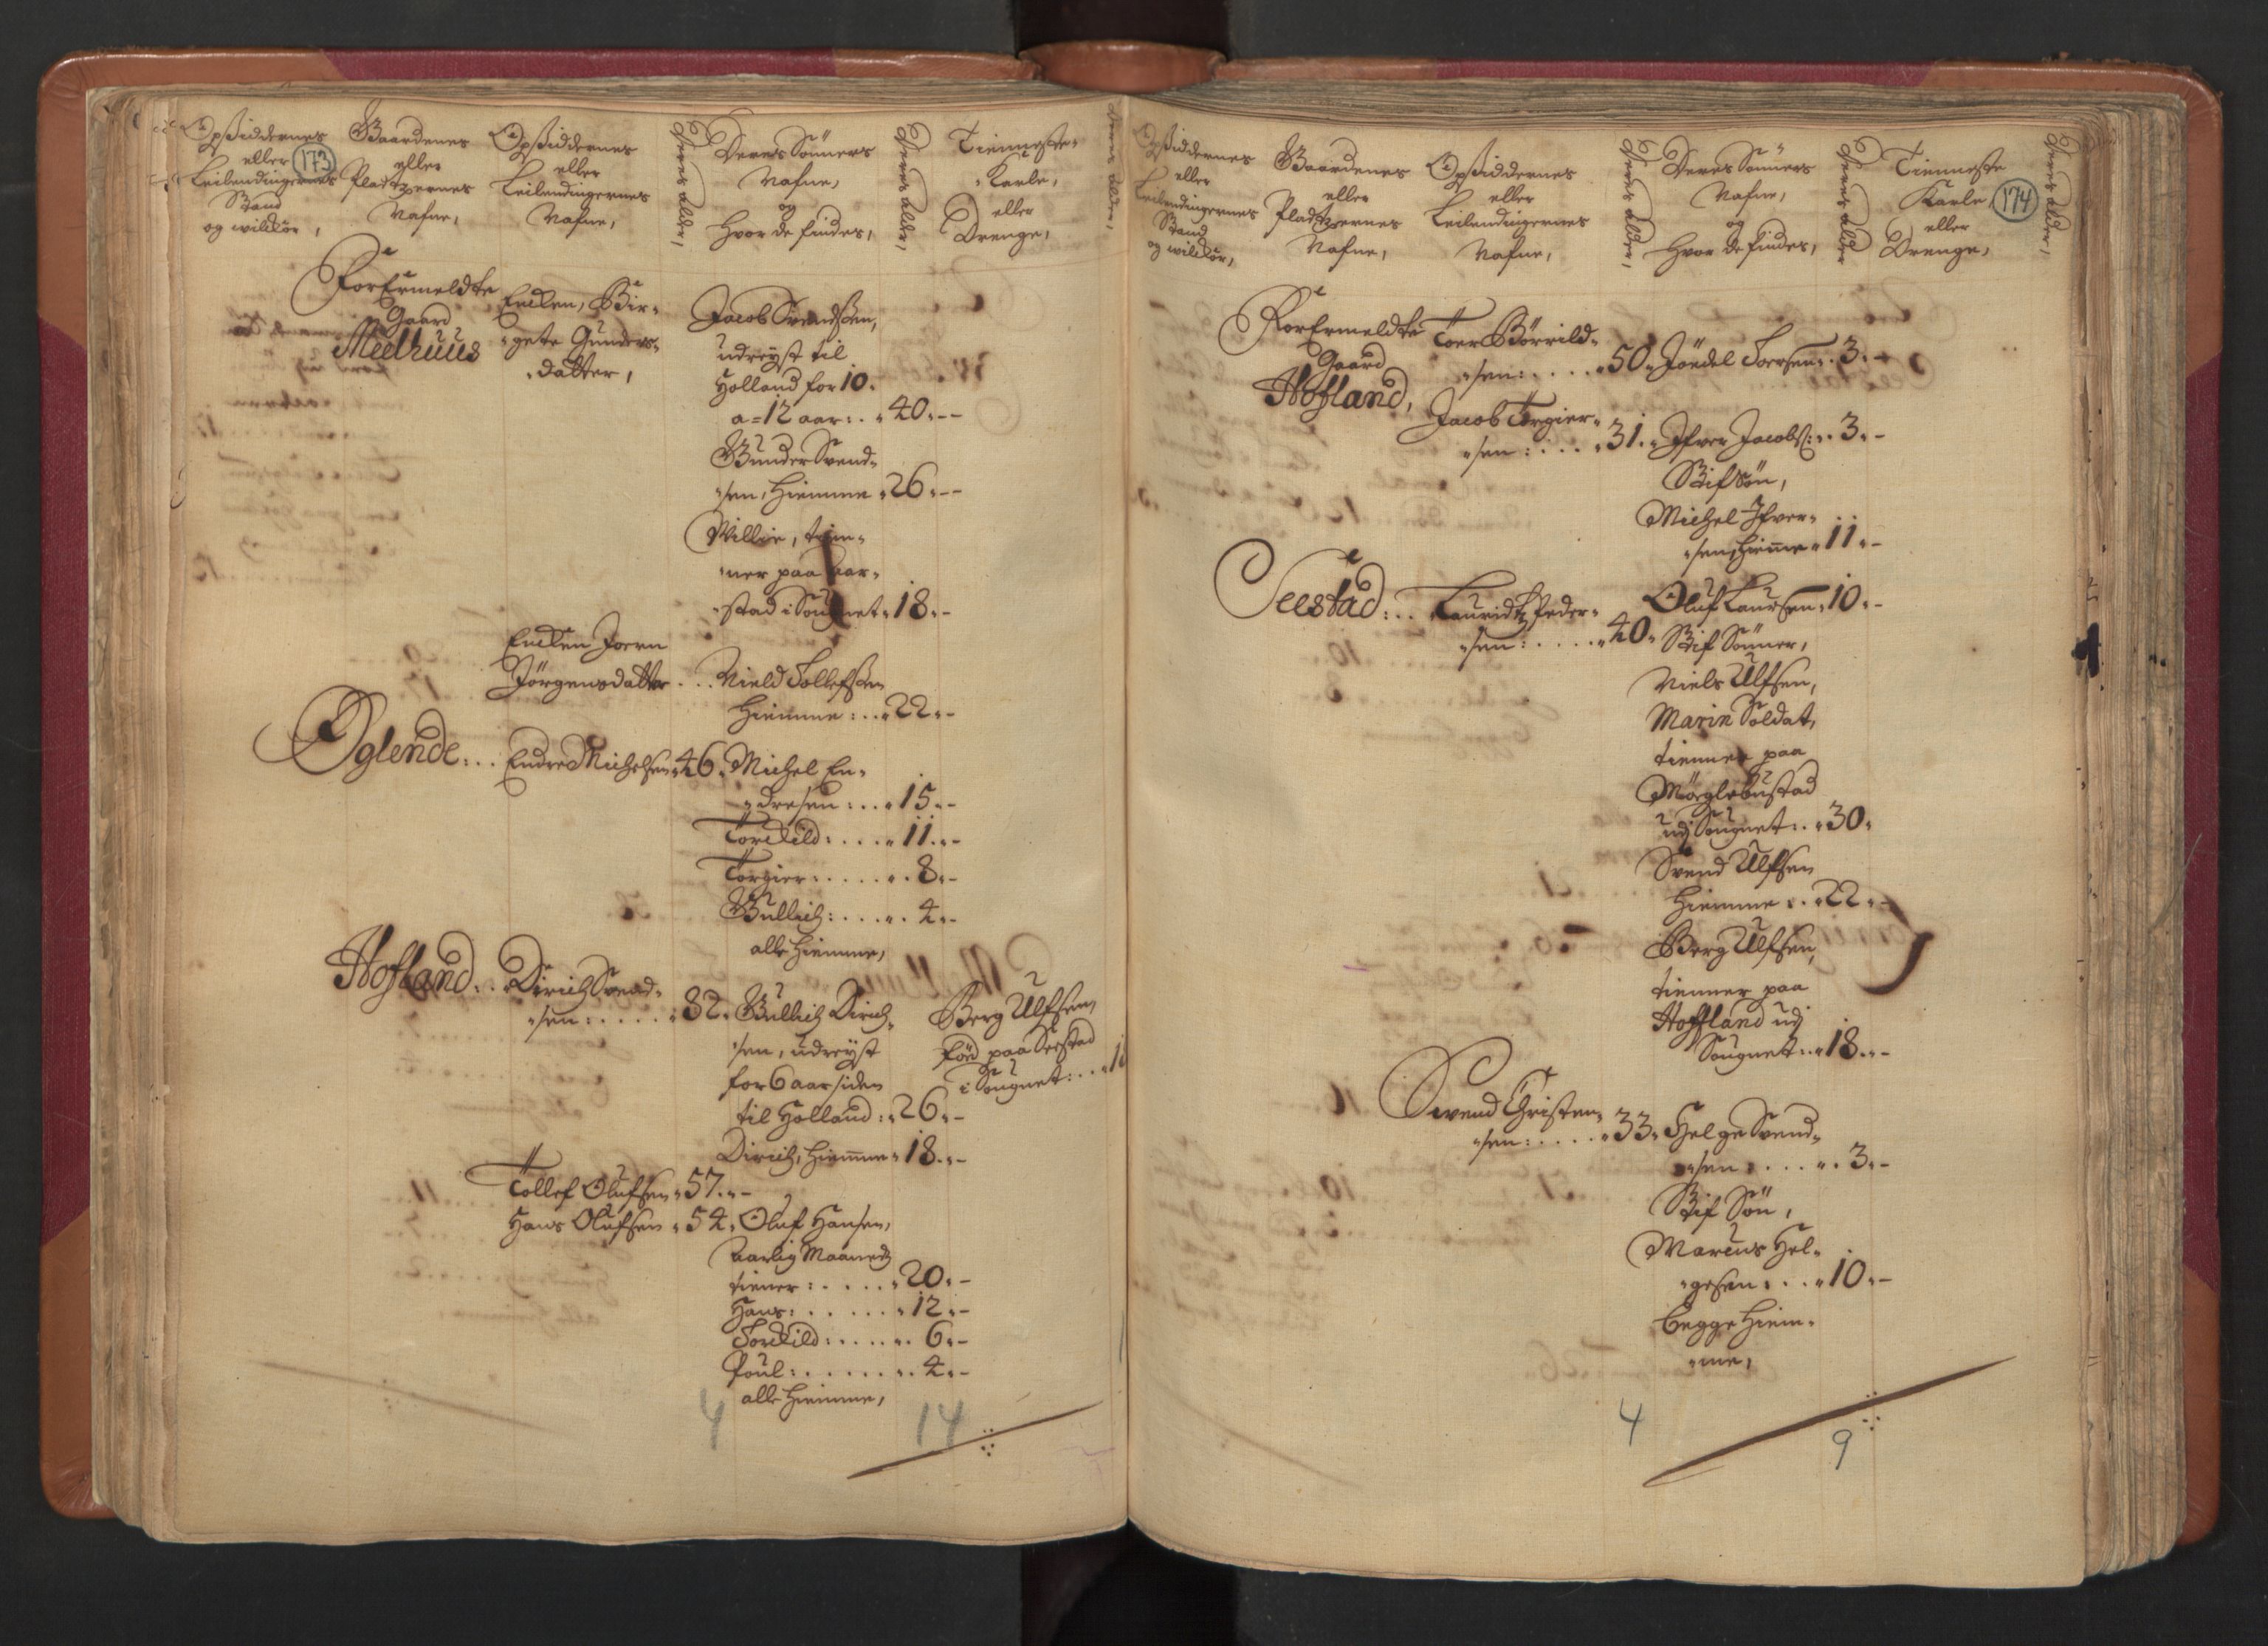 Opsiddernes
eller
Leilendingernes
Stand
og wilckor,
173
Gaardenes
eller
Pladtzernes
Nafne,
Opsiddernes
eller
Leilendingernes
Nafne,
Deres alder,
Deres Sönners
Nafne,
og
hvor de findes,
Deres alder,
Tienneste-
Karle,
eller
Drenge,
Deres alder,
ForErmeldte
Gaard
Meelhuus
Encken, Bir-
gete Gunders-
datter,
Jacob Svendsen,
udreyst til
Holland for 10.
a=12 aar: 40.
Gunder Svend-
sen, hiemme 26.
Willie, tien-
ner paa Aar-
stad i Sougnet 18.
Encken Joern
Jörgensdatter . . Nield Tollefsen
hiemme: . . 22.
Öglende: . . Endre Michelsen 46. Michel En-
dresen: . . . 15.
Torckild: . . . . 11.
Torgier: . . . . . 8.
Gullich: . . . . 4.
alle hiemme,
Hofland: . . Dirich Svend-
sen: . . . . . 82. Gullich Dirich-
sen, udreyst
for 6 aar siden
til Holland: 26.
Dirich, hiemme 18.
Berg Ulfsen
föd paa Seestad
i Sougnet: . . 18
Tollef Olufsen 57.
Hans Olufsen 54. Oluf Hansen,
Aarlig Maanedtz
tiener: . . . . . 20.
Hans: . . . . . 12.
Torckild: . . . . 6.
Poul: . . . . . 4.
alle hiemme,
4 14
Opsiddernes
eller
Leilendingernes
Stand
og wilckor,
Gaardenes
eller
Pladtzernes
Nafne,
Opsiddernes
eller
Leilendingernes
Nafne,
Deres alder,
Deres Sönners
Nafne,
og
hvor de findes,
Deres alder
Tienneste
Karle
eller
Drenge,
174
Deres alder,
ForErmeldte
Gaard
Hofland,
Toer Börrild-
sen: . . . . 50. Joedel Toersen: . 3.
Jacob Torgier-
sen: . . . . 31. Ifver Jacobs: . 3.
Stifsön,
Michel Ifver-
sen, hiemme 11.
Seestad: . . Lauridtz Peder-
sen: . . . . . 40.
Oluf Laursen 10.
Stif Sönner,
Niels Ulfsen,
Marin Soldat,
tienner paa
Möglebustad
udj Sougnet: . 30.
Svend Ulfsen
hiemme . . 22.
Berg Ulfsen,
tienner paa
Hoffland udj
Sougnet: . 18.
Svend Christen-
sen: . . . . . 33. Helge Svend-
sen: . . . . 3.
Stif Sön,
Marcus Hel-
gesen: . . 10.
begge hiem-
me,
4 9